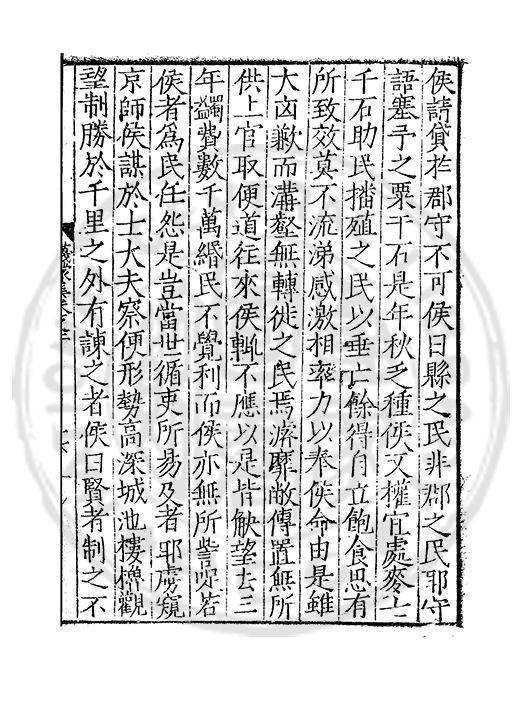 侯請貸扵郡守不可侯曰縣之民非郡之民耶守
語塞予之粟千石是年秋乏種侯又權宜處麥二
千石助民播殖之民以垂亡餘得自立飽食思有
所致效莫不流涕感激相率力以奉侯命由是雖
大凶歉而溝壑無轉徙之民焉瀕罷敝傳置無所
供上官取便道往來侯輒不應以是皆觖望去三
年蠲費數千萬緡民不覺利而侯亦無所訾定若
侯者爲民任怨是豈當世循吏所易及者耶虜窺
京師侯謀於士大夫察便形勢高深城池樓櫓觀
望制勝於千里之外有諫之者侯曰賢者制之不